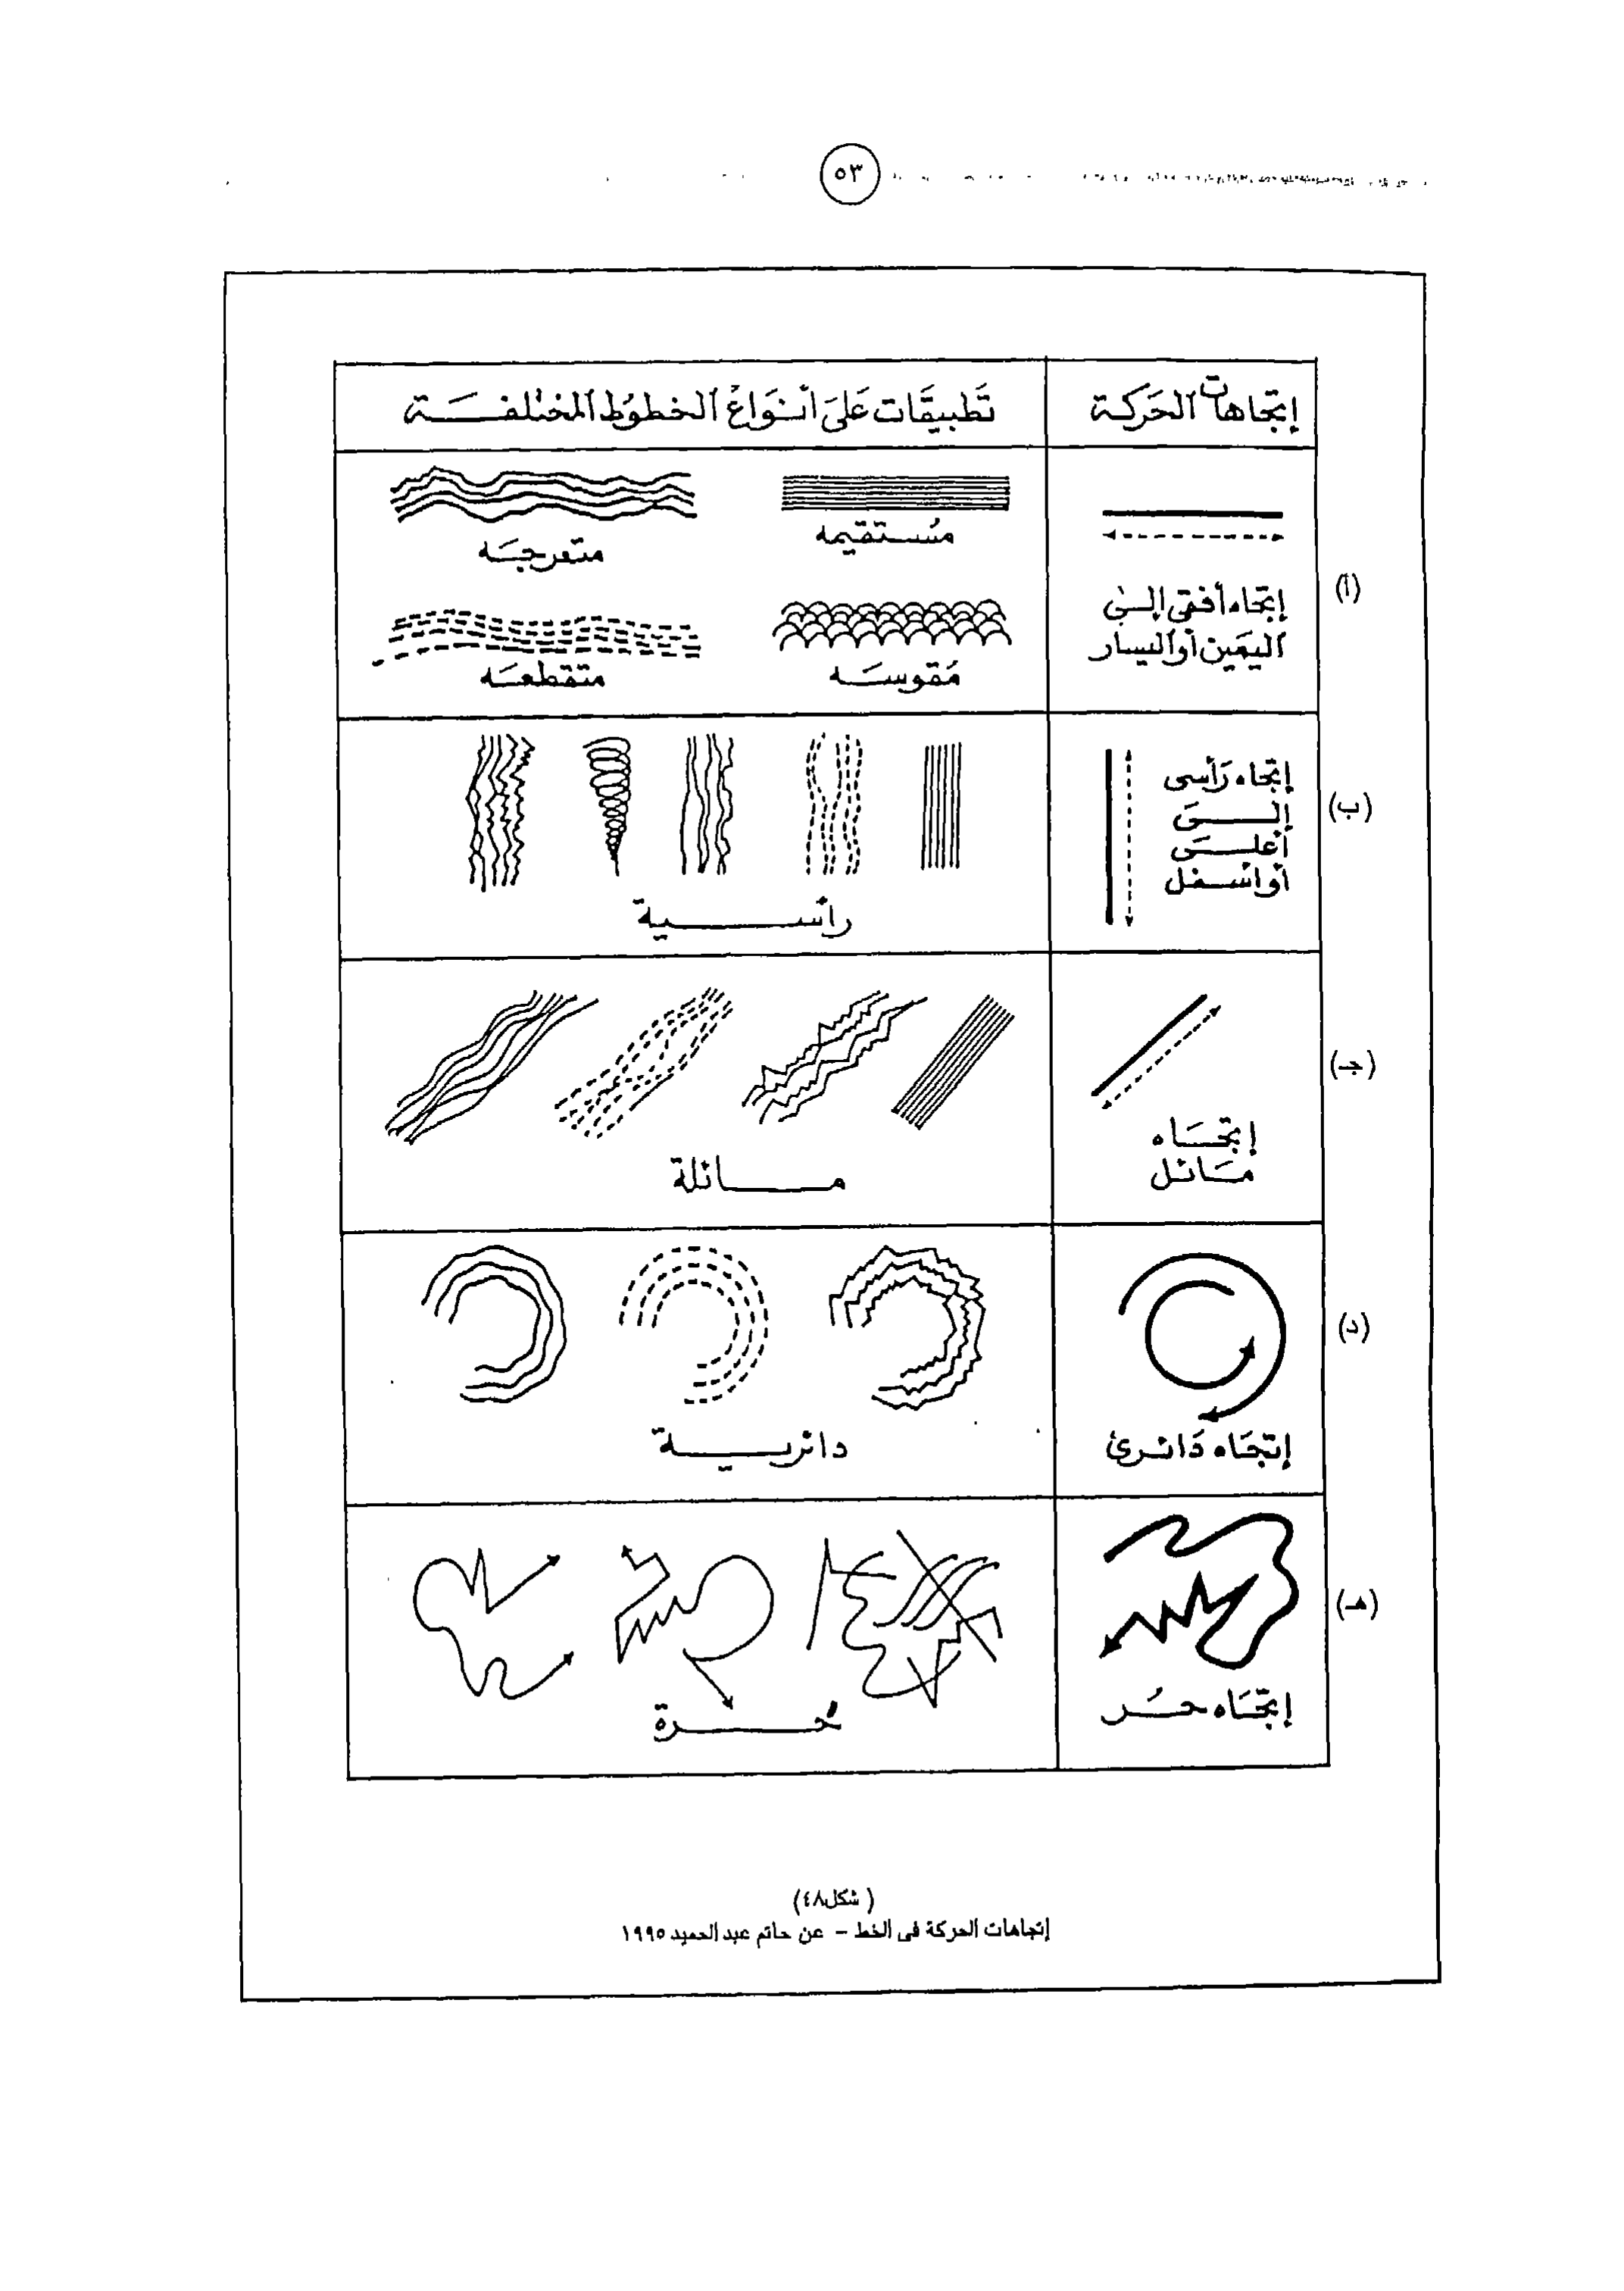 ٥٣
إتجاهات الحركة
تَطبيقَات عَلىَ أنـوَاع الخطوُط المختلفـة
(أ)
إتجاه أفقى إلى
اليمَين أو اليسار
مُستقيمه
متعرجَه
مَقوسَه
متقطعَه
(ب)
إتجاه رَأسى
إلـى
أعلـى
أو اسـفل
رأسـية
(جـ)
إتجـَاه
مَـائل
مـائلة
(د)
إتجَاه دَائرى
دائريـة
(هـ)
إتجَاه حـُر
حُـرة
(شكل٤٨)
إتجاهات الحركة فى الخط – عن حاتم عبد الحميد ١٩٩٥